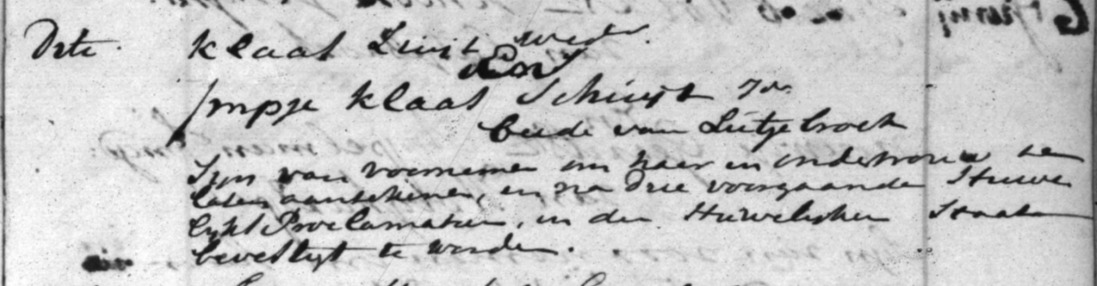 Dito. Klaas Zuijt wedr.
En
Impje Klaas Schuijt jd.
beide van Lutjebroek
Sijn van voornemen om haer in ondertrouw te
laten aantekenen, en na drie voorgaande Huwe
lijks Proclamatien, in den Huwelijken Staat
bevestigt te worden.